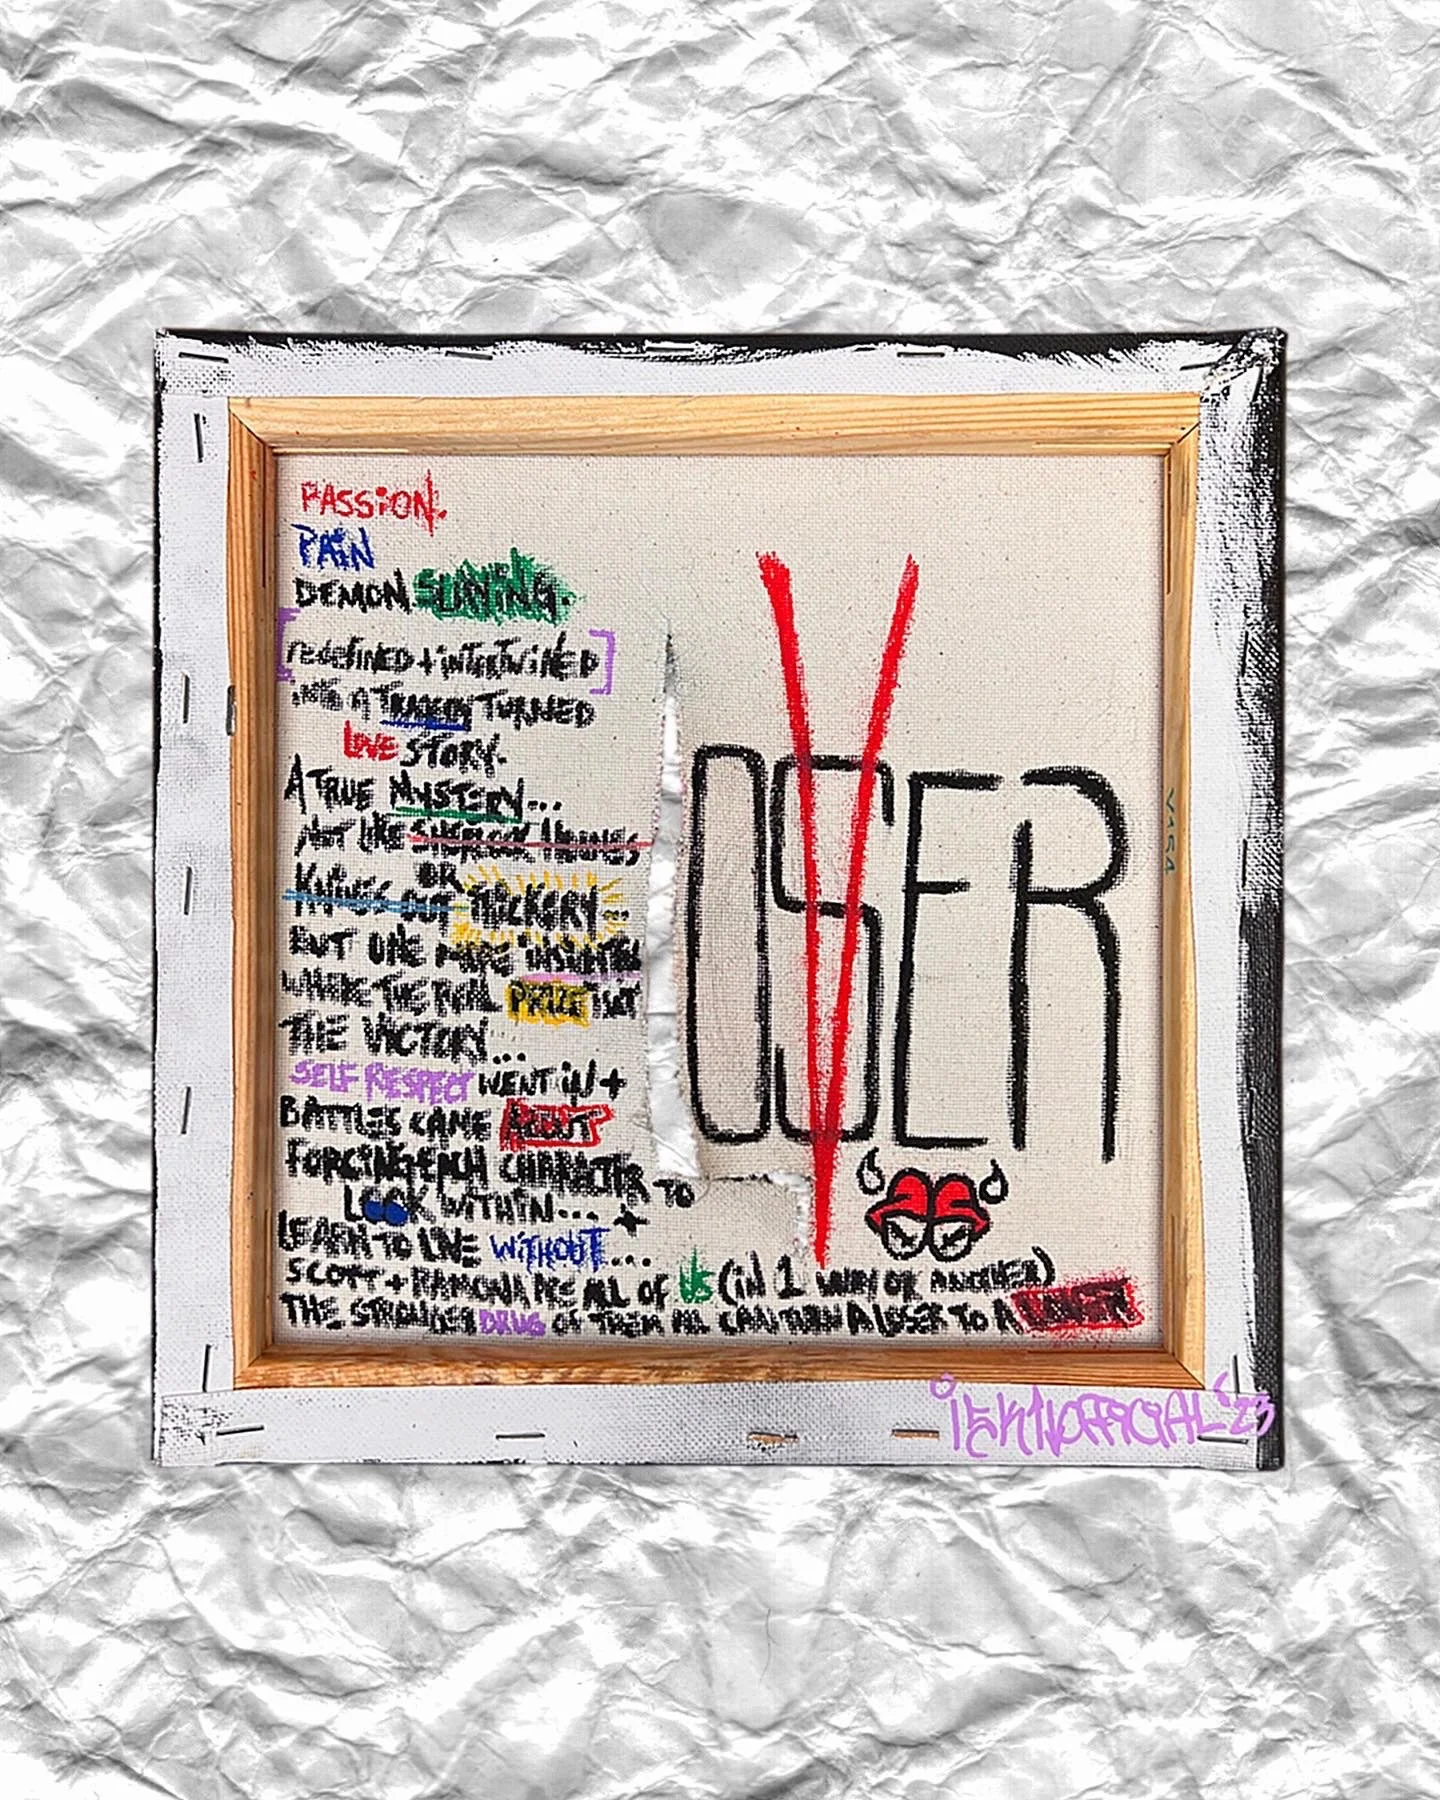 PASSION.
PAIN
DEMON SLAYING.
[redefINED + iNTERTWiNED]
iNTO A TRAGEDY TURNED
LOVE STORY.
A TRUE MYSTERY...
NOT LIKE SHERLOCK HOLMES
OR
KNIVES OUT TRICKERY...
BUT ONE MORE
WHERE THE REAL PRIZE ISNT
THE VICTORY...
SELF RESPECT WENT iN +
BATTLES CAME ABOUT
FORCING EACH CHARACTER TO
LOOK WiTHIN... +
LEARN TO LIVE WiTHOUT...
SCOTT + RAMONA ARE ALL OF US (iN 1 WAY OR ANOTHER)
THE STRONGER DRUG OF THEM ALL CAN TURN A LOSER TO A LOVER
LOSER
V
V154
iSK1NOFFiCiAL '23